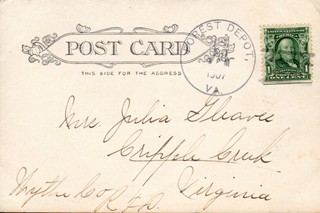 POST CARD
THIS SIDE FOR THE ADDRESS
FOREST DEPOT,
1907
VA.
UNITED STATES OF AMERICA
ONE CENT
Mrs. Julia Gleaves
Cripple Creek
Wythe Co R.F.D. Virginia